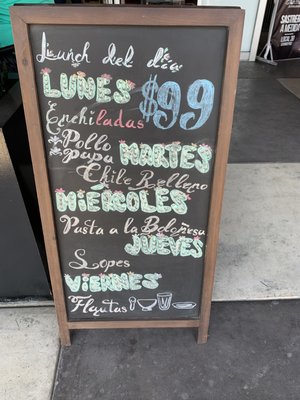 Lunch del día
LUNES
$99
Enchiladas
Pollo
Papa
MARTES
Chile Relleno
MIÉRCOLES
Pasta a la Boloñesa
JUEVES
Sopes
VIERNES
Flautas